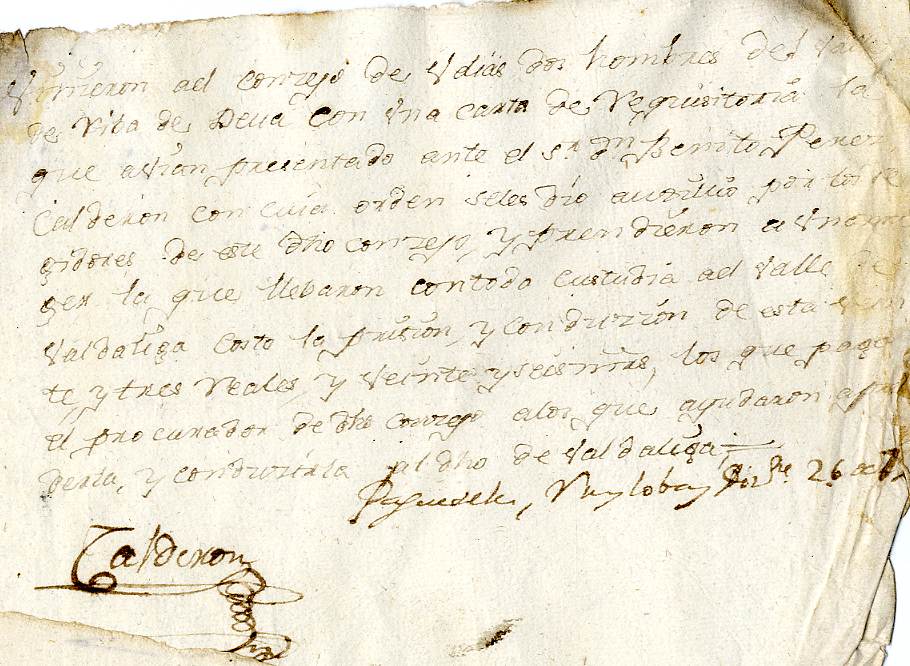 Vinieron al conzejo de Vdias dos hombres del Valle
de Riba de Deua con vna carta de Requisitoria la
que avian presentado ante el sr. dn Benito Perez
Calderon con cuia orden seles dio auxilio por los Re
gidores de este dho conzejo, y prendieron a vna mu
ger la que llebaron contodo custudia al Valle de
Valdaliga costo la prision, y conduzion de esta vein
te, y tres Reales, y veinte y seis mrs, los que pago
el procurador de dho conzejo alos que ayudaron apren
derla, y conduzirla al dho de Valdaliga;
Paguesele, Ruyloba y Dizre. 26 de
Calderon